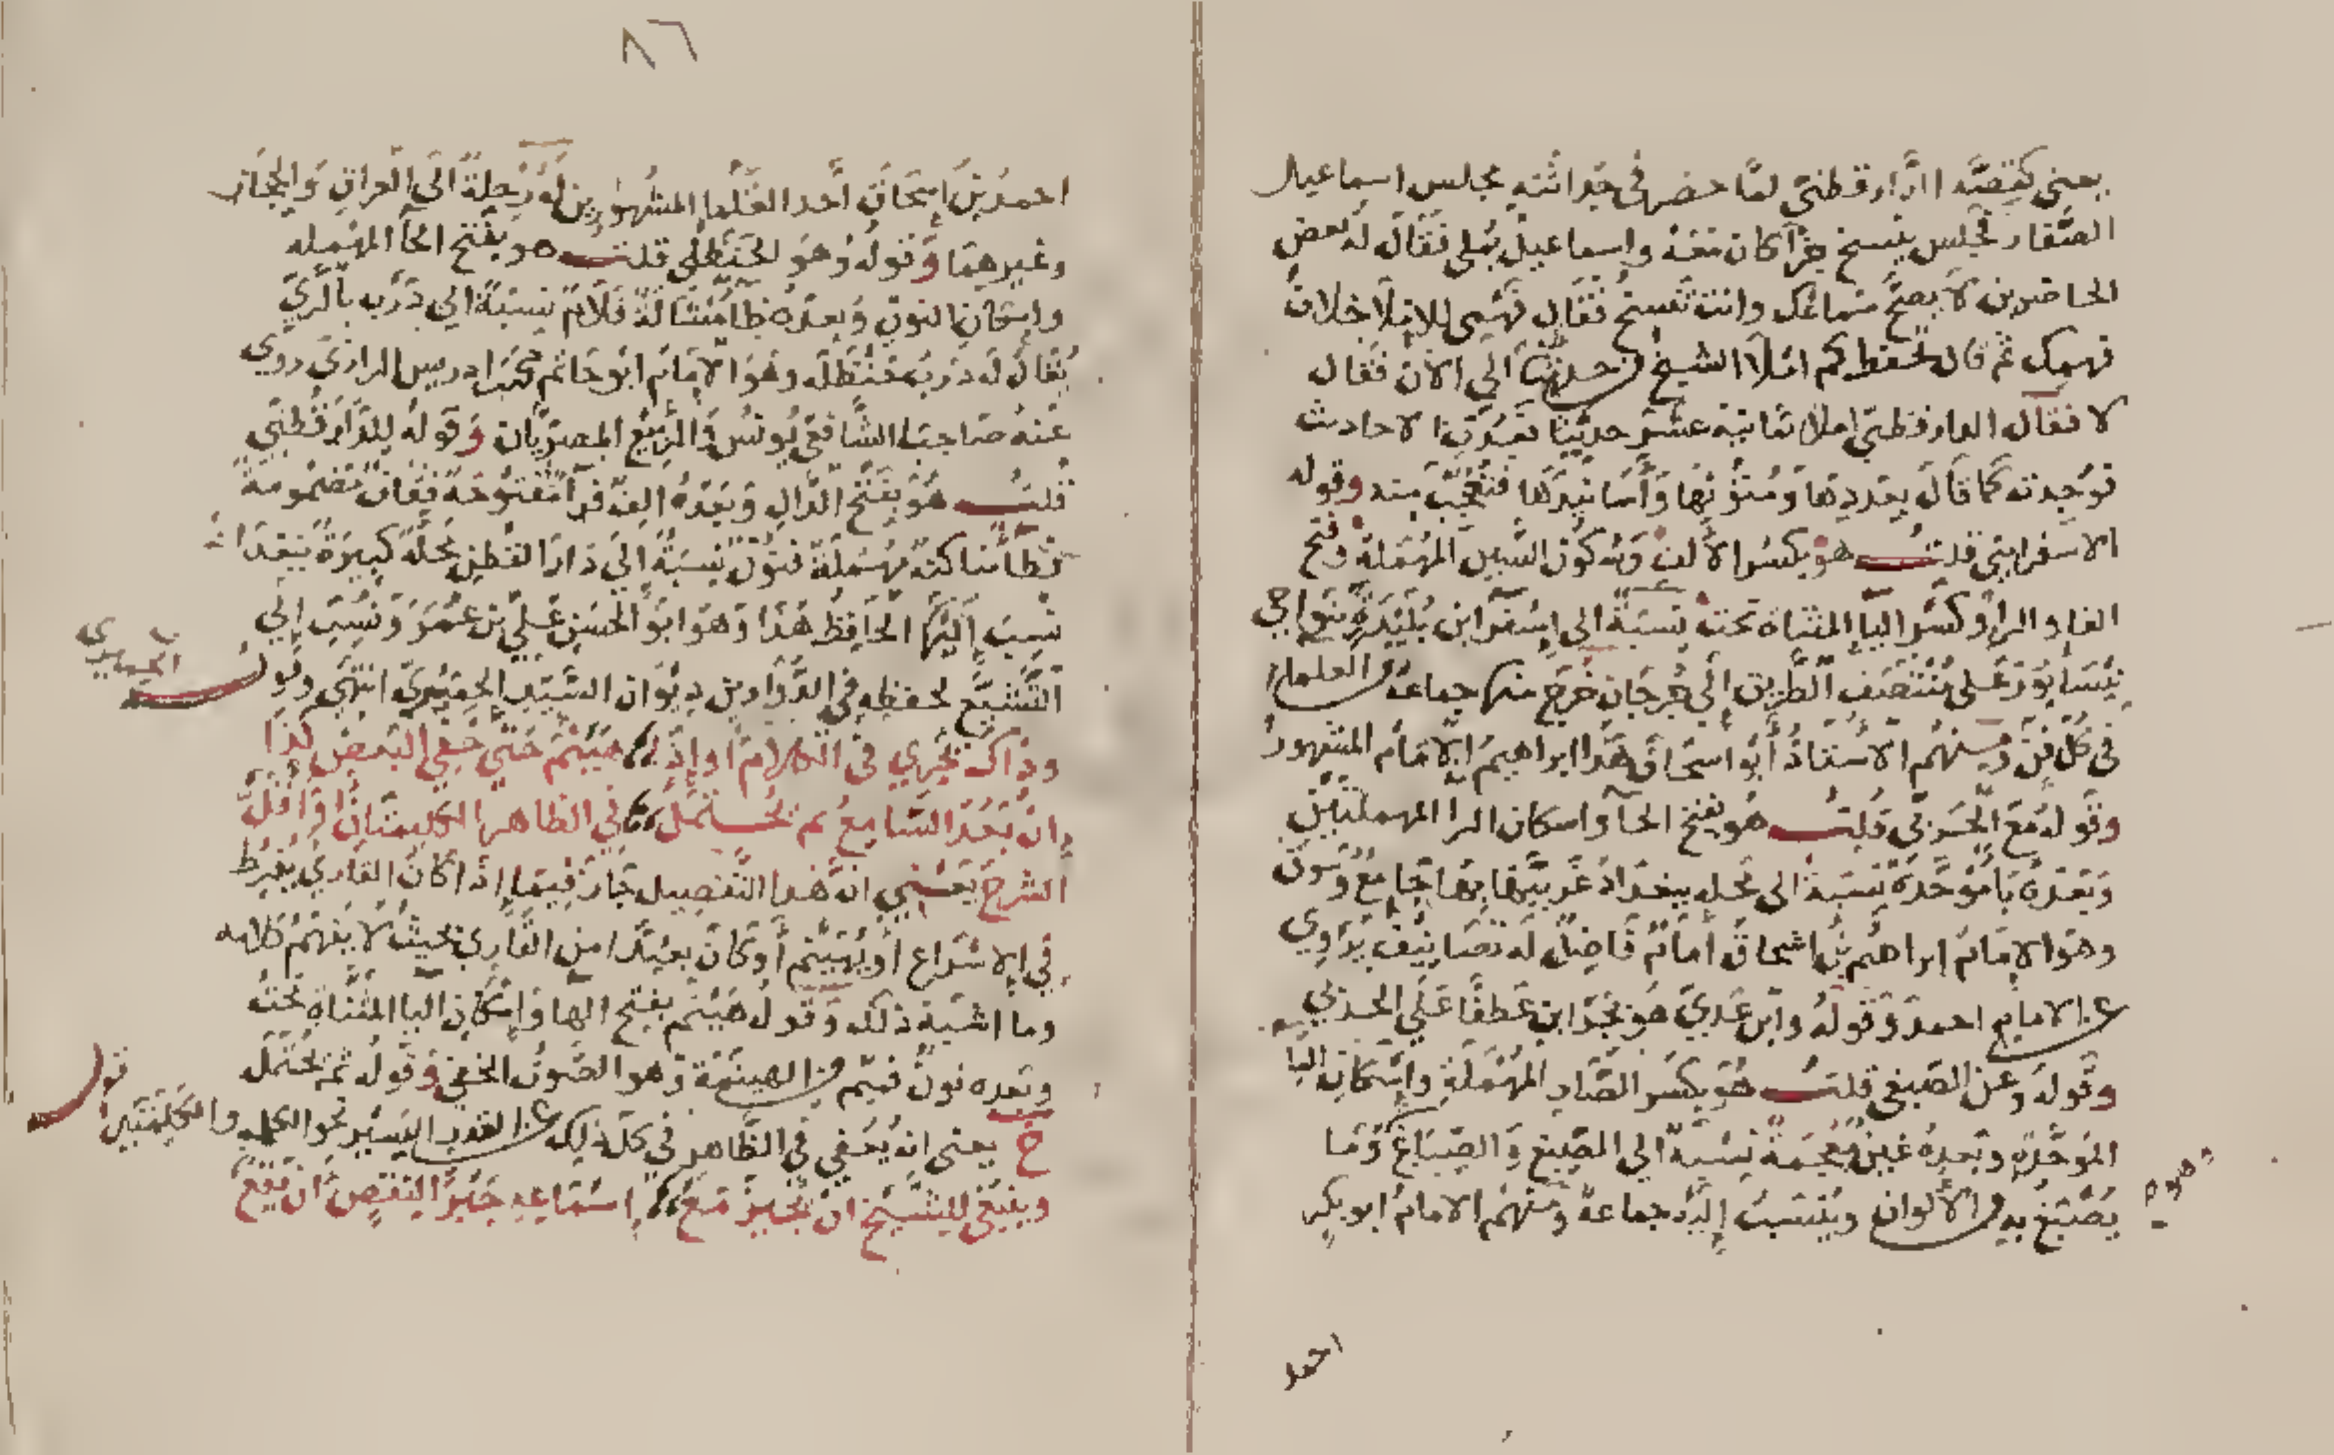 يعني كقصة الدارقطني لما حضر في حداثته مجلس اسماعيل
الصفار فجلس ينسخ جزآ كان معه واسماعيل يملي فقال له بعض
الحاضرين لا يصح سماعك وانت تنسخ فقال فهمي للاملا خلاف
فهمك ثم قال تحفظ كم املا الشيخ من حديث الى الان فقال
لا فقال الدارقطني املا ثمانية عشر حديثا فعددت الاحاديث
فوجدته كما قال بعددها ومتونها واسانيدها فتعجب منه وقوله
الاسفرايني قلت هو بكسر الالف وسكون السين المهملة وفتح
الفا والرا وكسر اليا المثناة تحت نسبة الى اسفراين بليدة بنواحي
نيسابور على منتصف الطريق الى جرجان خرج منها جماعة من العلما
في كل فن ومنهم الاستاذ أبو اسحاق هذا ابراهيم الامام المشهور
وقوله مع الحربي قلت هو بفتح الحا واسكان الرا المهملتين
وبعده با موحدة نسبة الى محله ببغداد غربيها بها جامع وسوق
وهو الامام ابراهيم بن اسحاق امام فاضل له تصانيف يروي
عن الامام احمد وقوله وابن عدي هو بجر ابن عطفا على الحربي
وقوله وعن الصبغي قلت هو بكسر الصاد المهملة واسكان البا
الموحدة وبعده غين معجمة نسبة الى الصبغ والصباغ وما
يصبغ به من الالوان وينتسب إليه جماعة ومنهم الامام ابو بكر
احمد
٨٦
احمد بن اسحاق احد العلما المشهورين له رحلة الى العراق والحجاز
وغيرهما وقوله وهو الحنظلي قلت هو بفتح الحآ المهمله
واسكان النون وبعده ظا مشالة فلام نسبة الى درب بالري
يقال له درب حنظله وهو الامام ابو حاتم محمد بن ادريس الرازي روى
عنه صاحبا الشافعي يونس والربيع المصريان وقوله للدارقطني
قلت هو بفتح الدال وبعده الف فرآ مفتوحة فقاف مضمومة
فطا ساكنة مهملة فنون نسبة الى دار القطن محلة كبيرة ببغداد
نسب اليها الحافظ هذا وهو ابو الحسن علي بن عمر ونسب الي
التشيع لحفظه في الدواوين ديوان السيد الحميري انتهى وقولـ
الحميري
وذاك يجري في الكلام او اذا هينم حتى خفي البعض كذا
ان بعد السامع ثم يحتمل في الظاهر الكلمتان او اقل
الشرح يعني ان هذا التفصيل جار فيما إذا كان القاري يفرط
في الاسراع أو يهينم أو كان بعيدا من القاري بحيث لا يفهم كلامه
وما اشبه ذلك وقوله هينم بفتح الها واسكان اليا المثناة تحت
وبعده نون فميم من الهينمة وهو الصوت الخفي وقوله ثم يحتمل
يعني انه يعفي في الظاهر في كل ذلك عن القدر اليسير نحو الكلمه والكلمتين
وينبغي للشيخ ان يجيز مع إسماعه جبرا لنقص أن يقع